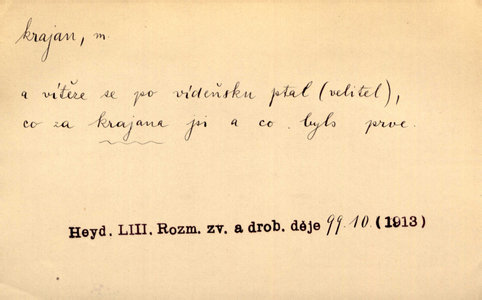 krajan, m.
a vítěze se po vídeňsku ptal (velitel),
co za krajana jsi a co byls prve.
Heyd. LIII. Rozm. zv. a drob. děje 99.10. (1913)